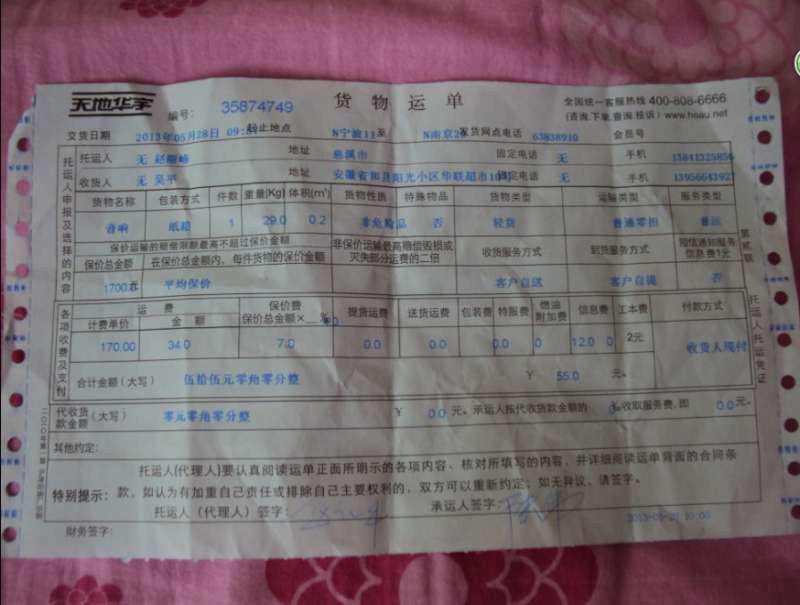 天地华宇 编号: 35874749 货物运单 全国统一客服热线 400-808-6666
(咨询.下单.查询.投诉) www.hoau.net
交货日期 2013年05月28日 起止地点 N宁波11至 N南京2 发货网点电话 63838910 会员号
托运人 无 地址 慈溪市 固定电话 无 手机
收货人 无 吴平 地址 安徽省 阳光小区华联超市 固定电话 无 手机
托运人申报及选择的内容
货物名称 包装方式 件数 重量(Kg) 体积(m³) 货物性质 特殊物品 货物类型 运输类型 服务类型
音响 纸箱 1 29.0 0.2 非危险品 否 轻货 普通零担 普运
保价运输的赔偿限额最高不超过保价金额 非保价运输最高赔偿毁损或灭失部分运费的二倍 收货服务方式 到货服务方式 短信通知服务信息费1元
保价总金额 在保价总金额内，每件货物的保价金额
1700 平均保价 客户自送 客户自提 否
各项收费及支付
运费 保价费 保价总金额×__% 提货运费 送货运费 包装费 特服费 燃油附加费 信息费 工本费 付款方式
计费单价 金额
170.00 34.0 7.0 0.0 0.0 0.0 0 12.0 0 2元 收货人现付
合计金额(大写) 伍拾伍元零角零分整 ¥ 55.0 元。
代收货款金额 (大写) 零元零角零分整 ¥ 0.0 元。承运人按代收货款金额的 %收取服务费,即 0.0 元。
其他约定:
特别提示: 托运人(代理人)要认真阅读运单正面所明示的各项内容、核对所填写的内容，并详细阅读运单背面的合同条
款，如认为有加重自己责任或排除自己主要权利的，双方可以重新约定；如无异议、请签字。
托运人（代理人）签字: 承运人签字:
财务签字:
托运人托运凭证